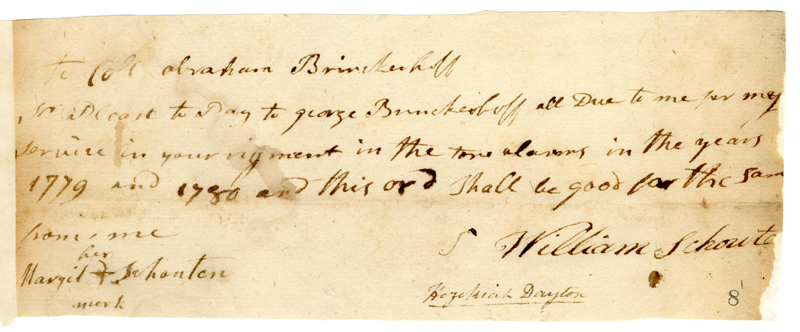 to Coll abraham Brinckerhoff
Sr Pleas to Pay to george Brinckerhoff all Due to me for my
service in your rigment in the two alarms in the years
1779 and 1780 and this ord Shall be good for the Sam
from me
William Schoute
her
Margit + Schouten
mark
Hezekiah Dayton
8